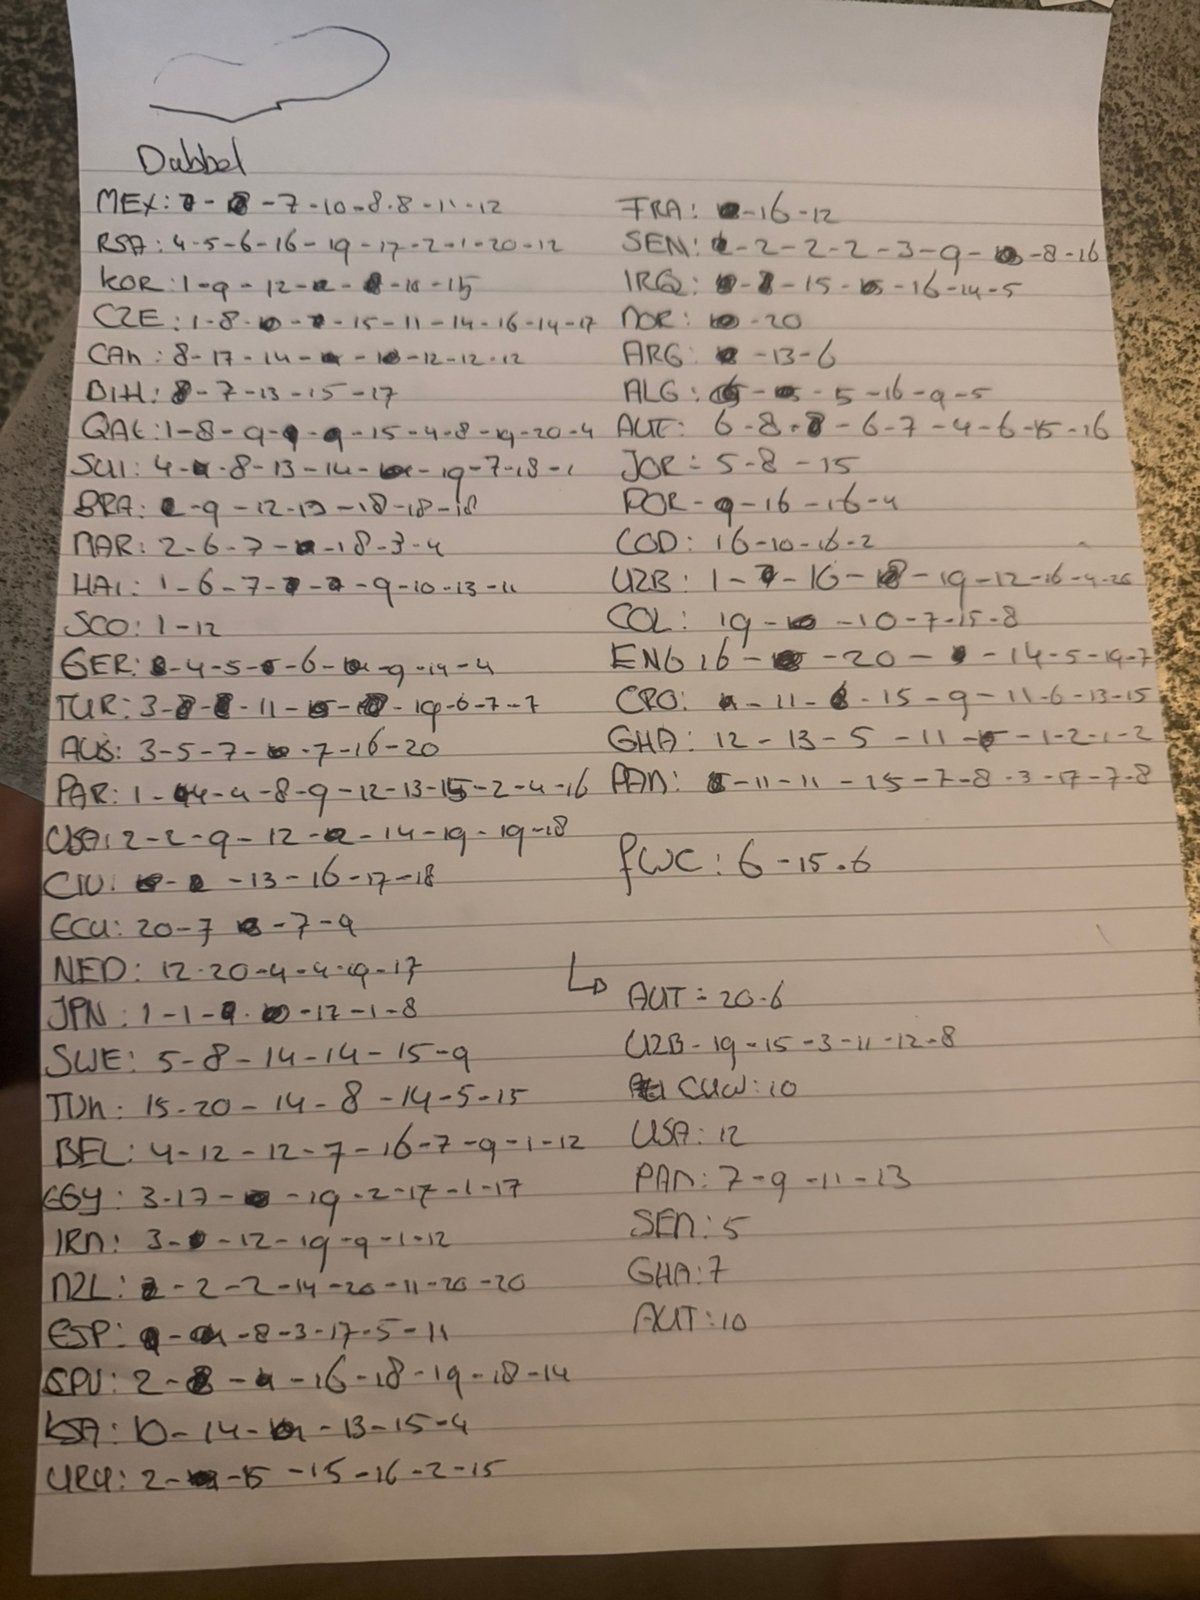 Dubbel
MEX: 7 - 8 - 7 - 10 - 8 - 8 - 11 - 12
RSA: 4 - 5 - 6 - 16 - 19 - 17 - 2 - 1 - 20 - 12
KOR: 1 - 9 - 12 - - - 15
CZE: 1 - 8 - - - 15 - 11 - 14 - 16 - 14 - 17
CAN: 8 - 17 - 14 - - - 12 - 12 - 12
BIH: 8 - 7 - 13 - 15 - 17
QAT: 1 - 8 - 9 - 9 - 9 - 15 - 4 - 8 - 19 - 20 - 4
SUI: 4 - - 8 - 13 - 14 - - 19 - 7 - 18 - 1
BRA: 2 - 9 - 12 - 13 - 18 - 18 - 18
MAR: 2 - 6 - 7 - - 18 - 3 - 4
HAI: 1 - 6 - 7 - 7 - - 9 - 10 - 13 - 11
SCO: 1 - 12
GER: - 4 - 5 - - 6 - - 9 - 14 - 4
TUR: 3 - 8 - 8 - 11 - - - 19 - 6 - 7 - 7
AUS: 3 - 5 - 7 - - 7 - 16 - 20
PAR: 1 - 4 - 4 - 8 - 9 - 12 - 13 - 15 - 2 - 4 - 16
USA: 2 - 2 - 9 - 12 - - 14 - 19 - 19 - 18
CIV: - - 13 - 16 - 17 - 18
ECU: 20 - 7 - 7 - 9
NED: 12 - 20 - 4 - 4 - 19 - 17
JPN: 1 - 1 - 9 - - 17 - 1 - 8
SWE: 5 - 8 - 14 - 14 - 15 - 9
TUN: 15 - 20 - 14 - 8 - 14 - 5 - 15
BEL: 4 - 12 - 12 - 7 - 16 - 7 - 9 - 1 - 12
EGY: 3 - 17 - - 19 - 2 - 17 - 1 - 17
IRN: 3 - - 12 - 19 - 9 - 1 - 12
NZL: 2 - 2 - 2 - 14 - 20 - 11 - 20 - 20
ESP: 9 - - 8 - 3 - 17 - 5 - 11
CPV: 2 - 8 - - 16 - 18 - 19 - 18 - 14
KSA: 10 - 14 - - 13 - 15 - 4
URU: 2 - - 15 - 15 - 16 - 2 - 15
FRA: - 16 - 12
SEN: - 2 - 2 - 2 - 3 - 9 - - 8 - 16
IRQ: - 8 - 15 - - 16 - 14 - 5
NOR: - 20
ARG: - 13 - 6
ALG: - - 5 - 16 - 9 - 5
AUT: 6 - 8 - 8 - 6 - 7 - 4 - 6 - 15 - 16
JOR: 5 - 8 - 15
POR - 9 - 16 - 16 - 4
COD: 16 - 10 - 16 - 2
UZB: 1 - 7 - 16 - 18 - 19 - 12 - 16 - 4 - 20
COL: 19 - - 10 - 7 - 15 - 8
ENG 16 - - 20 - - 14 - 5 - 19 - 7
CRO: - 11 - - 15 - 9 - 11 - 6 - 13 - 15
GHA: 12 - 13 - 5 - 11 - - 1 - 2 - 1 - 2
PAN: - 11 - 11 - 15 - 7 - 8 - 3 - 17 - 7 - 8
fWC: 6 - 15 - 6
AUT = 20 - 6
UZB - 19 - 15 - 3 - 11 - 12 - 8
CUW: 10
USA: 12
PAN: 7 - 9 - 11 - 13
SEN: 5
GHA: 7
AUT: 10